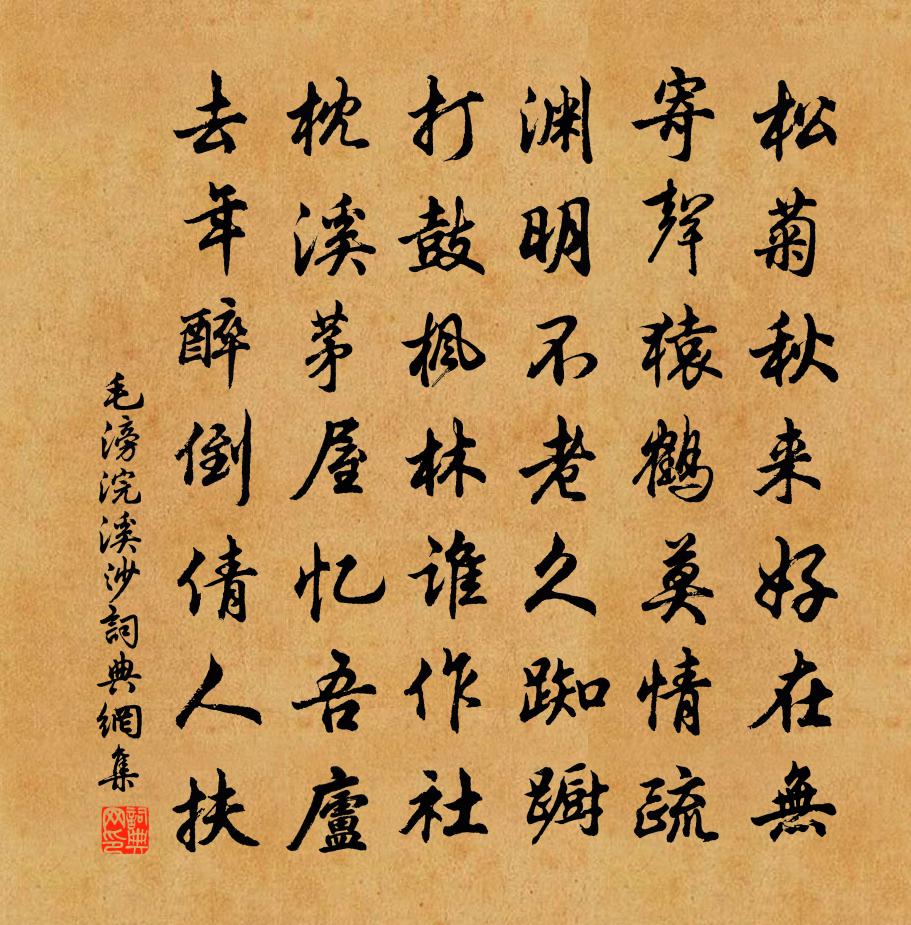 松菊秋来好在無
寄聲猿鶴莫情疏
渊明不老久踟蹰
打鼓楓林谁作社
枕溪茅屋忆吾廬
去年醉倒倩人扶
毛滂浣溪沙詞典網集
詞典网印